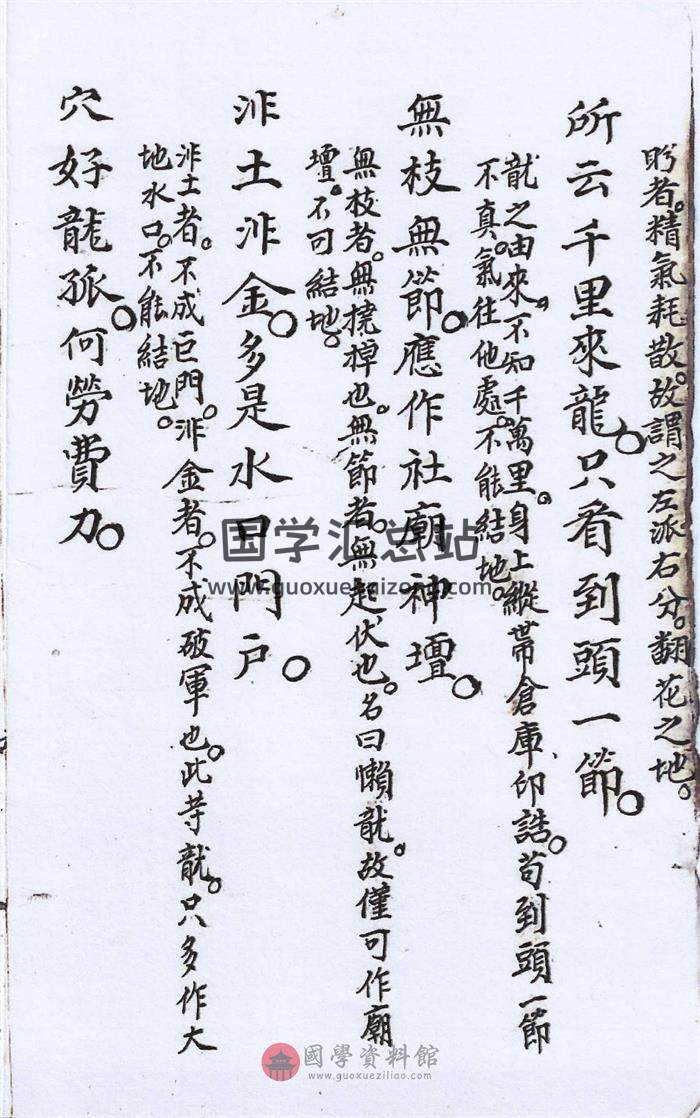 盻者。精氣耗散。故謂之左派右分。翻花之地。
所云千里來龍。只看到頭一節。
龍之由來。不知千萬里。身上縱帶倉庫印誥。苟到頭一節
不真。氣往他處。不能結地。
無枝無節。應作社廟神壇。
無枝者。無橈棹也。無節者。無起伏也。名曰懶龍。故僅可作廟
壇。不可結地。
非土非金。多是水口門戶。
非土者。不成巨門。非金者。不成破軍也。此等龍。只多作大
地水口。不能結地。
穴好龍孤。何勞費力。
国学汇总站
www.guoxuehuizong.com
國學資料館
www.guoxueziliao.com